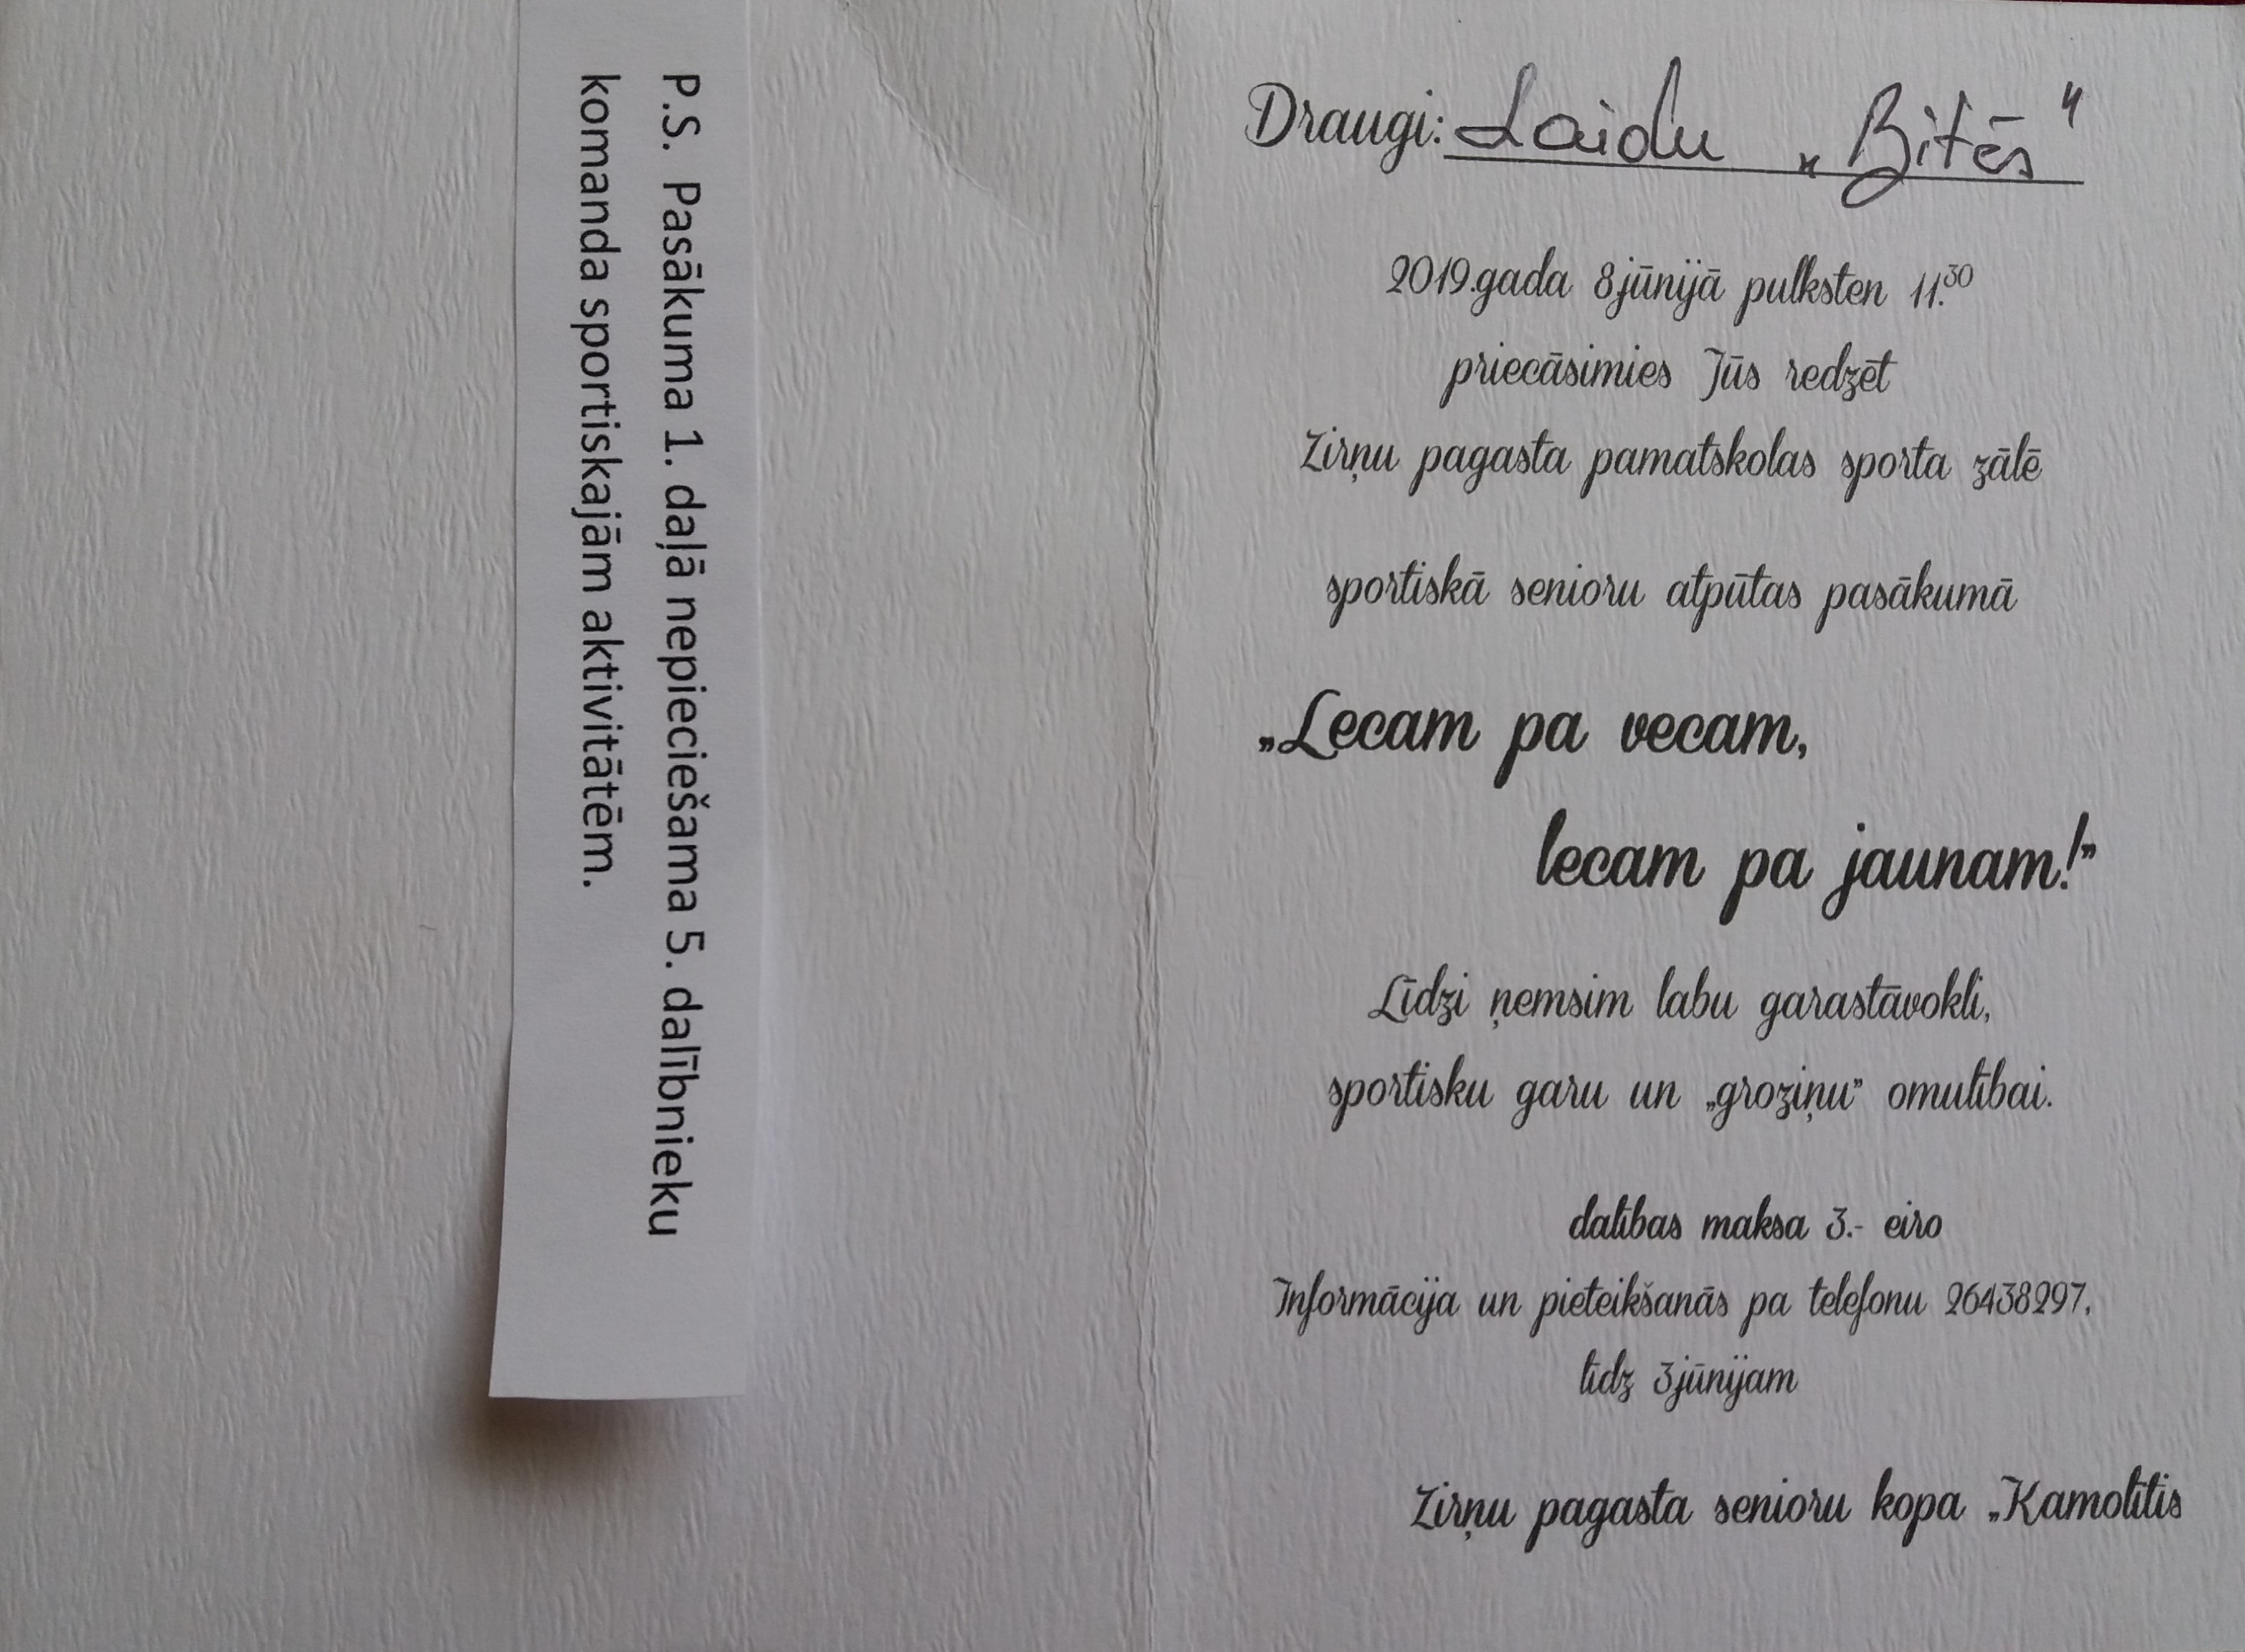 Draugi: Laidu „Bitēs"
2019.gada 8.jūnijā pulksten 11.30
priecāsimies Jūs redzēt
Zirņu pagasta pamatskolas sporta zālē
sportiskā senioru atpūtas pasākumā
„Lecam pa vecam,
lecam pa jaunam!”
Līdzi ņemsim labu garastāvokli,
sportisku garu un „groziņu” omulībai.
dalības maksa 3.- eiro
Informācija un pieteikšanās pa telefonu 26438297,
līdz 3.jūnijam
Zirņu pagasta senioru kopa „Kamolītis
P.S. Pasākuma 1. daļā nepieciešama 5. dalībnieku
komanda sportiskajām aktivitātēm.